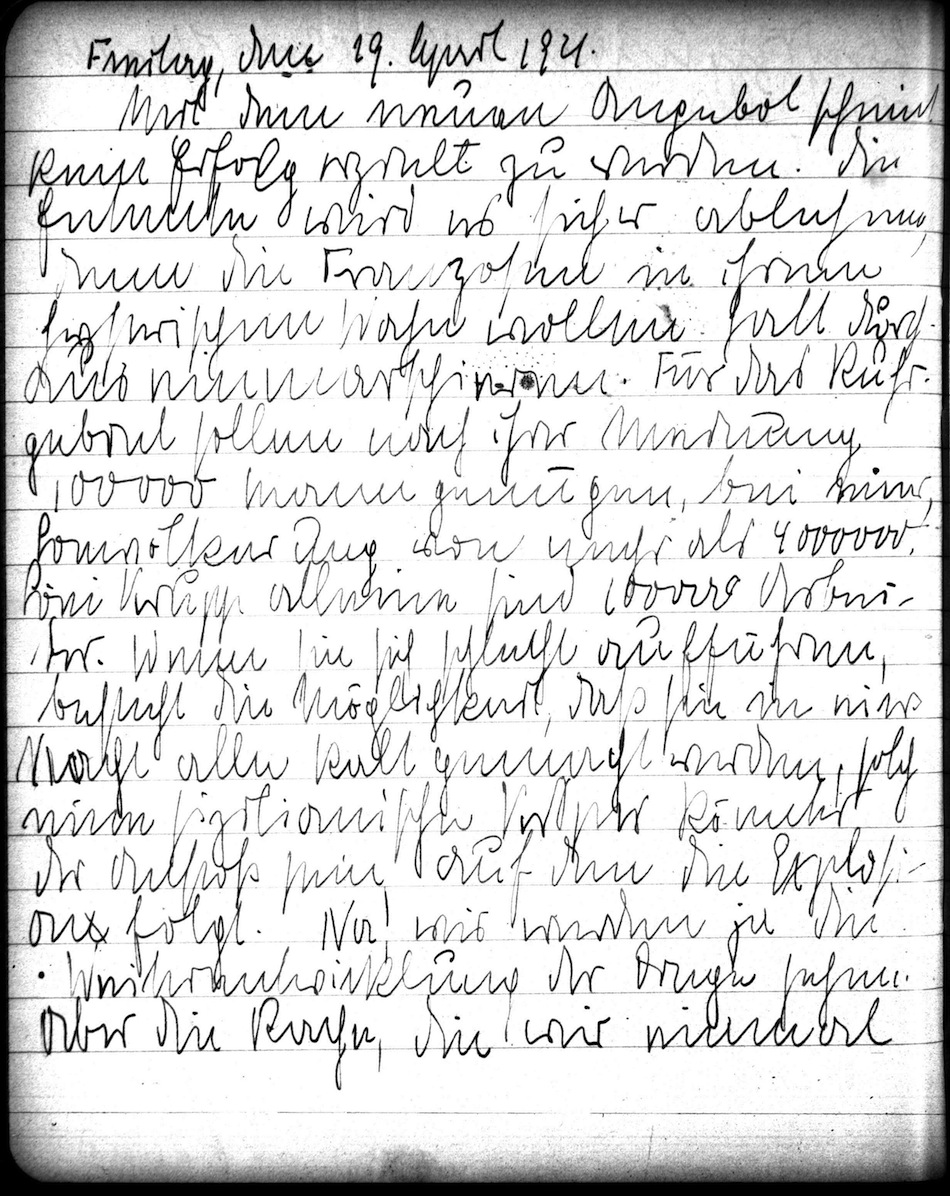 Freitag, den 29. April 1921.
Mit dem neuen Angebot scheint
kein Erfolg erzielt zu werden. Die
Entente wird es sicher ablehnen,
denn die Franzosen in ihrem
hysterischen Wahn wollen halt durch-
aus einmarschieren. Für das Ruhr-
gebiet sollen nach ihrer Meinung
100000 Mann genügen, bei einer
Bevölkerung von mehr als 4000000.
Bei Krupp allein sind 100000 Arbei-
ter. Wenn sie sich schlecht aufführen,
besteht die Möglichkeit, daß sie in einer
Nacht alle kalt gemacht werden, solch
eine sizilianische Vesper könnte
der Anstoß sein, auf dem die Explosi-
on folgt. Na! wir werden ja die
Weiterentwicklung der Dinge sehen.
Aber die Rache, die wir einmal